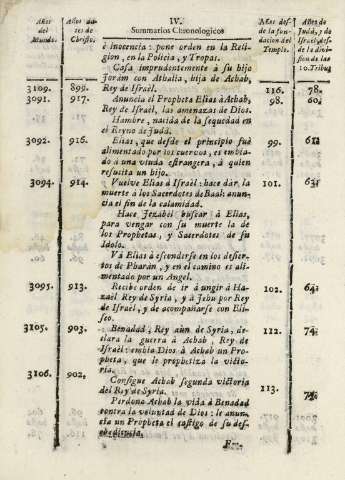 Años del Mundo.
Años antes de Christo.
IV.
Summarios Chronologicos
Años des- de la fundacion del Templo.
Años de Judá, y de Israël despues de la division de las 10. Tribus
è inocencia: pone orden en la Reli-
gion, en la Policia, y Tropas.
Casa imprudentemente à su hijo
Joràm con Athalia, hija de Achab,
3109. 899. Rey de Israël. 116. 78.
3091. 917. Anuncia el Propheta Elias à Achab, 98. 60.
Rey de Israël, las amenazas de Dios.
Hambre, nacida de la sequedad en
el Reyno de Judá.
3092. 916. Elias, que desde el principio fuè 99. 61.
alimentado por los cuervos, es embia-
do à una viuda estrangera, à quien
resucita un hijo.
3094. 914. Vuelve Elias à Israël: hace dár la 101. 63.
muerte à los Sacerdotes de Baal: anun-
cia el fin de la calamidad.
Hace Jezabèl buscar à Elias,
para vengar con su muerte la de
los Prophetas, y Sacerdotes de su
Idolo.
Và Elias à esconderse en los desier-
tos de Pharán, y en el camino es ali-
mentado por un Angel.
3095. 913. Recibe orden de ir à ungir à Ha- 102. 64.
zaèl Rey de Syria, y à Jehu por Rey
de Israël, y de acompañarse con Eli-
seo.
3105. 903. Benadad, Rey aun de Syria, de- 112. 74.
clara la guerra à Achab, Rey de
Israël: embia Dios à Achab un Pro-
pheta, que le prophetiza la victo-
ria.
3106. 902. Consigue Achab segunda victoria 113.
del Rey de Syria.
Perdona Achab la vida à Benadad
contra la voluntad de Dios: le anun-
cia un Propheta el castigo de su des-
obediencia.